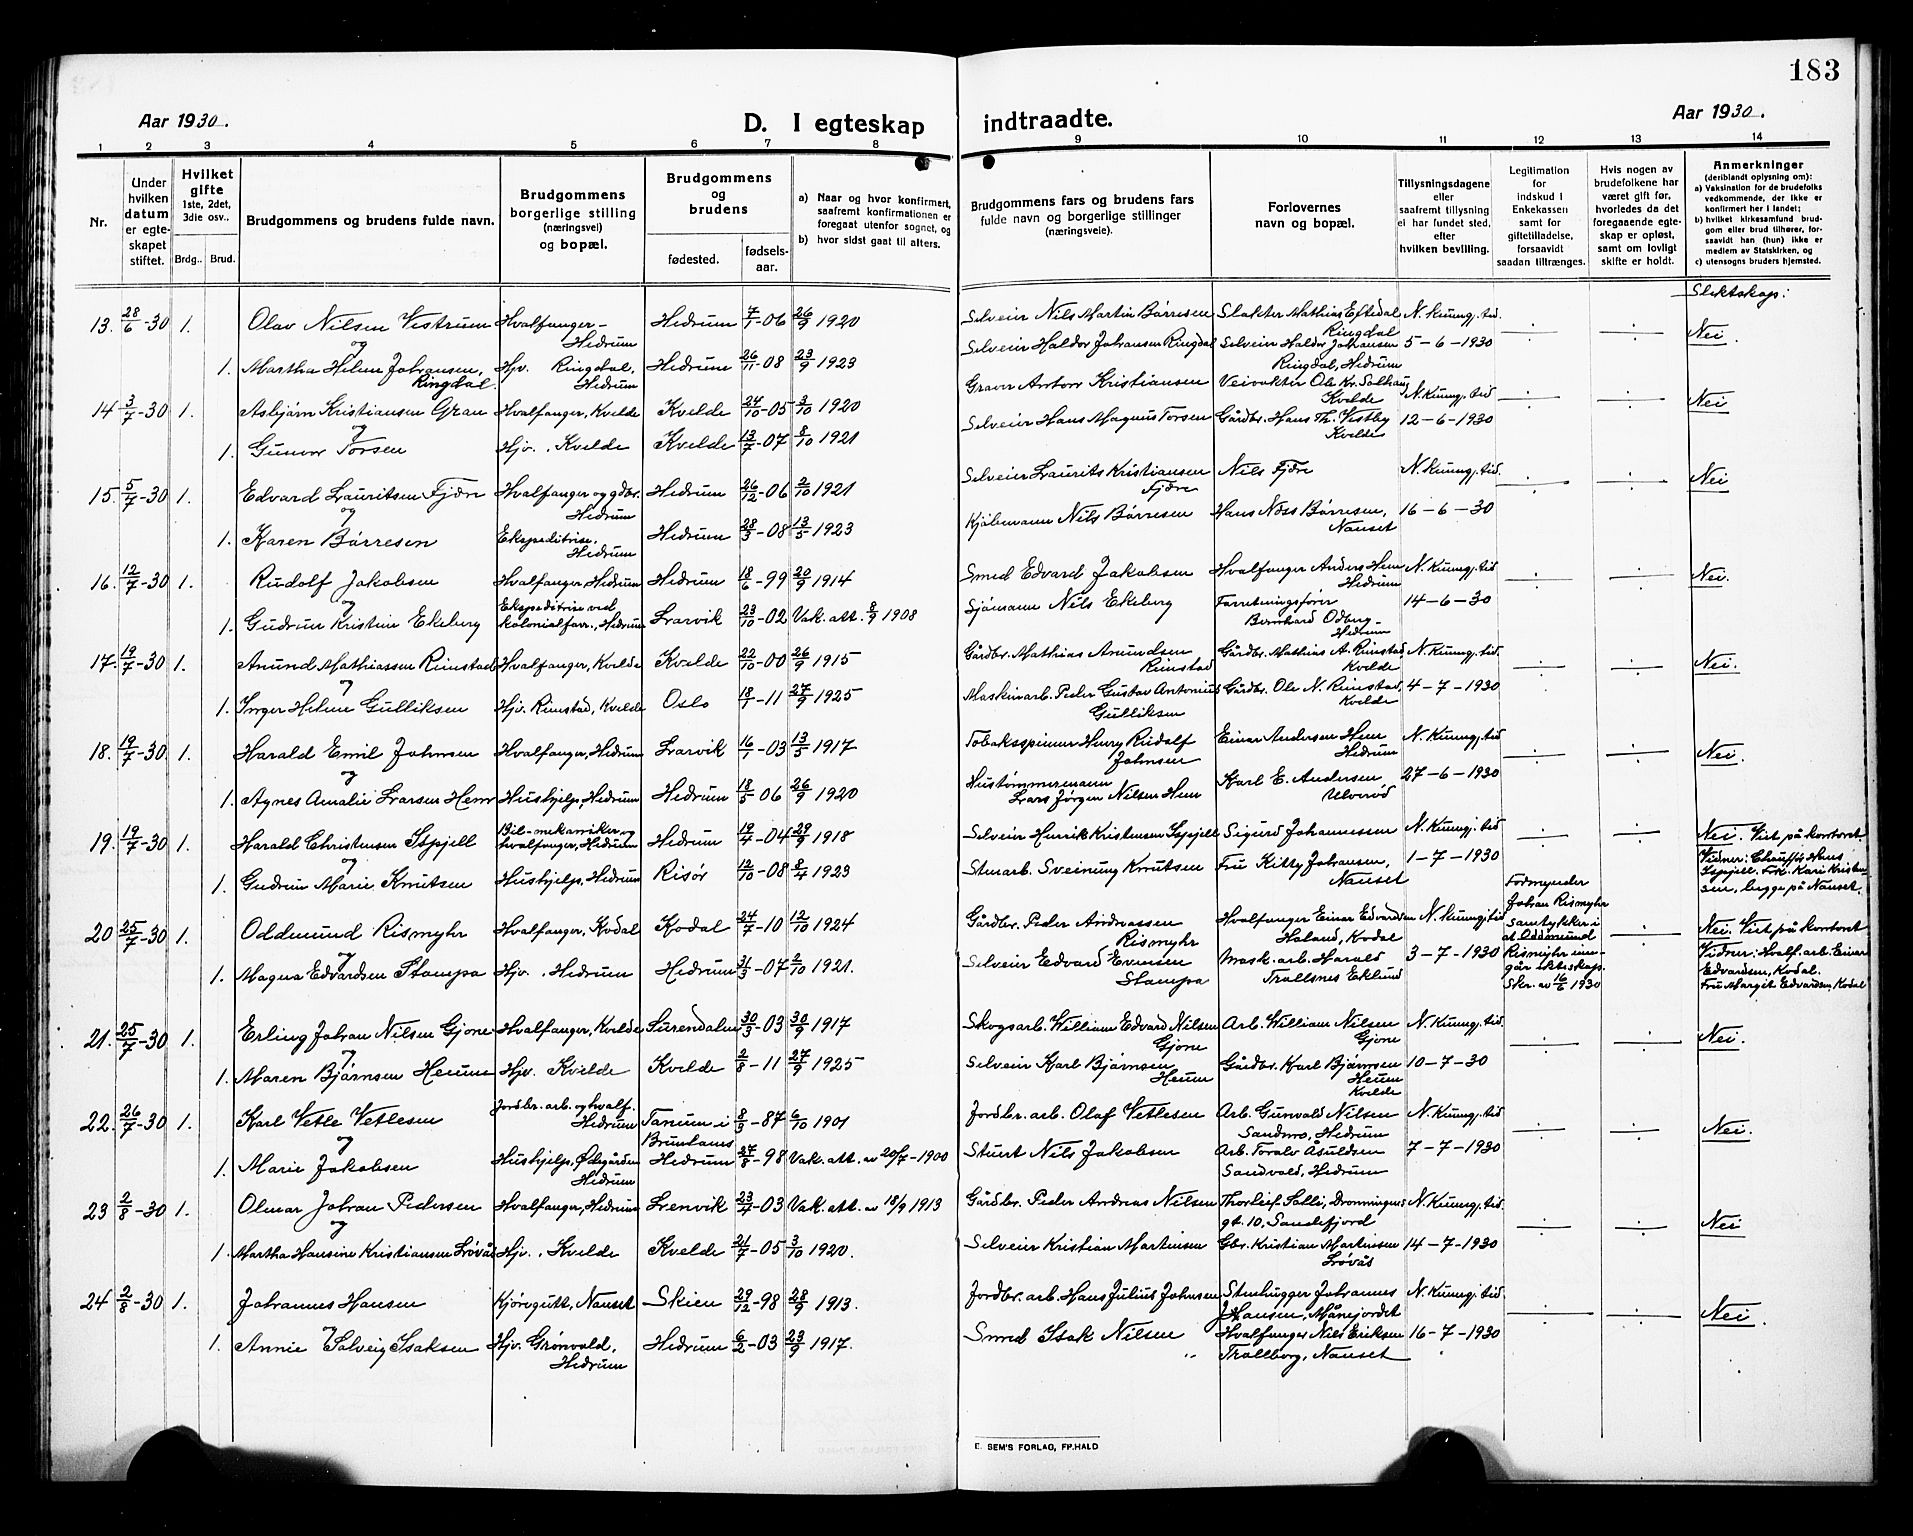 183
Aar 1930.
D. I egteskap
indtraadte.
Aar 1930.
1 2 3 4 5 6 7 8 9 10 11 12 13 14
Nr.
Under hvilken datum er egteskapet stiftet.
Hvilket gifte 1ste, 2det, 3die osv..
Brdg.. Brud.
Brudgommens og brudens fulde navn.
Brudgommens borgerlige stilling (næringsvei) og bopæl.
Brudgommens og brudens
fødested. fødselsaar.
a) Naar og hvor konfirmert, saafremt konfirmationen er foregaat utenfor sognet, og
b) hvor sidst gaat til alters.
Brudgommens fars og brudens fars fulde navn og borgerlige stillinger (næringsveie).
Forlovernes navn og bopæl.
Tillysningsdagene eller saafremt tillysning ei har fundet sted, efter hvilken bevilling.
Legitimation for indskud i Enkekassen samt for giftetilladelse, forsaavidt saadan tiltrænges.
Hvis nogen av brudefolkene har været gift før, hvorledes da det foregaaende egteskap er opløst, samt om lovligt skifte er holdt.
Anmerkninger
(deriblandt oplysning om):
a) Vaksination for de brudefolks vedkommende, der ikke er konfirmert her i landet;
b) hvilket kirkesamfund brudgom eller brud tilhører, forsaavidt han (hun) ikke er medlem av Statskirken, og
c) utensogns bruders hjemsted.
Slektskap:
13. 28/6-30 1. Olav Nilsen Vestrum Hvalfanger - Hedrum Hedrum 7/1-06 26/9 1920 Selveier Nils Martin Børresen Slakter Mathias Eftedal Ringdal N. Kunngj. tid Nei.
og
1. Martha Helene Johansen, Ringdal. Hjv. Ringdal, Hedrum Hedrum 26/11-08 23/9 1923 Selveier Haldor Johansen Ringdal Selveier Haldor Johansen Ringdal, Hedrum 5-6-1930
14 3/7-30 1. Asbjørn Kristiansen Gran Hvalfanger, Kvelde Kvelde 24/10-05 3/10 1920 Graver Anton Kristiansen Veivokter Ole Kr. Solhaug Kvelde N. Kunngj. tid Nei
og
1. Gunvor Torsen Hjv. . Kvelde Kvelde 13/7-07 8/10 1921 Selveier Hans Magnus Torsen Gårdbr. Hans Th. Vestby Kvelde 12-6-1930
15. 5/7-30 1. Edvard Lauritsen Fjære Hvalfanger og gdbr. Hedrum Hedrum 26/12-06 2/10 1921 Selveier Laurits Kristiansen Fjære Nils Fjære N. Kunngj. tid Nei
og
1. Karen Børresen Ekspeditrise. Hedrum Hedrum 28/3-08 13/5 1923 Kjøbmann Nils Børresen Hans Næss Børresen, Nanset 16-6-30
16. 12/7-30 1. Rudolf Jakobsen Hvalfanger, Hedrum Hedrum 18/6-99 20/9 1914 Smed Edvard Jakobsen Hvalfanger Anders Hem Hedrum N. Kunngj. tid Nei.
og
1. Gudrun Kristine Ekeberg Ekspeditrise ved kolonialforr., Hedrum Larvik 23/10-02 Vak. att. 8/9 1908 Sjømann Nils Ekeberg Forretningsfører Bernhard Odberg - Hedrum 14-6-30
17. 19/7-30 1. Anund Mathiassen Rimstad Hvalfanger, Kvelde Kvelde 22/10-00 26/9 1915 Gårdbr. Mathias Anundsen Rimstad Gårdbr. Mathias A. Rimstad, Kvelde N. Kunngj. tid Nei.
og
1. Inger Helene Gulliksen Hjv. Rimstad, Kvelde Oslo 18/1-11 27/9 1925 Maskinarb. Peder Gustav Antonius Gulliksen Gårdbr. Ole N. Rimstad, Kvelde 4-7-1930
18. 19/7-30 1. Harald Emil Johnsen Hvalfanger, Hedrum Larvik 16/1-03 13/5 1917 Tobaksspinner Henry Rudolf Johnsen Einar Andersen Hem Hedrum N. Kunngj. tid Nei.
og
1. Agnes Amalie Larsen Hem Hushjelp, Hedrum Hedrum 18/5 06 26/9 1920 Hustømmermann Lars Jørgen Nilsen Hem Karl E. Andersen Ulverød 27-6-1930
19. 19/7-30 1. Harald Christensen Ispjell Bil-mekaniker og hvalfanger, Hedrum Hedrum 19/4-04 29/9 1918 Selveier Henrik Kristensen Ispjell Sigurd Johannessen N. Kunngj. tid Nei. Viet på kontoret.
og
1. Gudrun Marie Knutsen Hushjelp, Hedrum Risør 12/10-08 8/4 1923 Stenarb. Sveinung Knutsen Fru Kitty Johansen, Nanset 1-7-1930 Vidner: Chauffør Hans Ispjell. Frk. Kari Kristensen, begge på Nanset.
20 25/7-30 1. Oddmund Rismyhr Hvalfanger, Kodal Kodal 24/7-10 12/10 1924 Gårdbr. Peder Andreassen Rismyhr Hvalfanger Einar Edvardsen Haland, Kodal N. Kunngj. tid Formynder Johan Rismyhr samtykker i at Oddmund Rismyhr inngår ekteskap. Skr. av 16/6 1930 Nei. Viet på kontoret
og
1. Magna Edvardsen Stampa Hjv. . Hedrum Hedrum 31/3-07 2/10 1921. Selveier Edvard Evensen Stampa Mask. arb. Harald Trollsnes Eklund 3-7-1930 Vidner: Hvalf. arb. Einar Edvardsen, Kodal. Fru Margit Edvardsen, Kodal
21. 25/7-30 1. Erling Johan Nilsen Gjone Hvalfanger, Kvelde Surendalen 30/3-03 30/9 1917 Skogsarb. William Edvard Nilsen Gjone Arb. William Nilsen Gjone N. Kunngj. tid. Nei.
og
1. Maren Bjørnsen Heum Hjv. Kvelde Kvelde 2/8-11 27/9 1925 Selveier Karl Bjørnsen Heum Gårdbr. Karl Bjørnsen Heum Kvelde 10-7-30
22. 26/7-30 1. Karl Vetle Vetlesen Jordbr. arb. og hvalf. Hedrum Tanum i Brunlanes 8/9-87 6/10 1901 Jordbr. arb. Olaf Vetlesen Arb. Gunvald Nilsen Sandmo, Hedrum N. Kunngj. tid Nei.
og
1. Marie Jakobsen Hushjelp, Ødegården Hedrum Hedrum 27/8-98 Vak. Att. av 20/7-1900 Stuert Nils Jakobsen Arb. Toralv Åsuldsen Sandvold, Hedrum 7-7-1930
23 2/8-30 1. Olmar Johan Pedersen Hvalfanger, Hedrum Lenvik 23/4-03 Vak. att. av 18/9 1913 Gårdbr. Peder Andreas Nilsen Thorleif Solli, Dronningens gt. 10. Sandefjord N. Kunngj. tid. Nei
og
1. Martha Hansine Kristiansen Løvås Hjv. . Kvelde Kvelde 21/7-05 3/10 1920. Selveier Kristian Martinsen Gbr. Kristian Martinsen Løvås 14-7-1930
24 2/8-30 1. Johannes Hansen Kjøregutt, Nanset Skien 29/12-98 28/9 1913. Jordbr. arb. Hans Julius Johnsen Stenhugger Johannes J Hansen, Månejordet N. Kunngj. tid. Nei.
og
1. Annie Solveig Isaksen Hjv. Grønvold, Hedrum Hedrum 6/2-03 23/9 1917. Smed Isak Nilsen Hvalfanger Nils Eriksen Trollborg, Nanset 16-7-1930
E. SEM'S FORLAG, FR.HALD